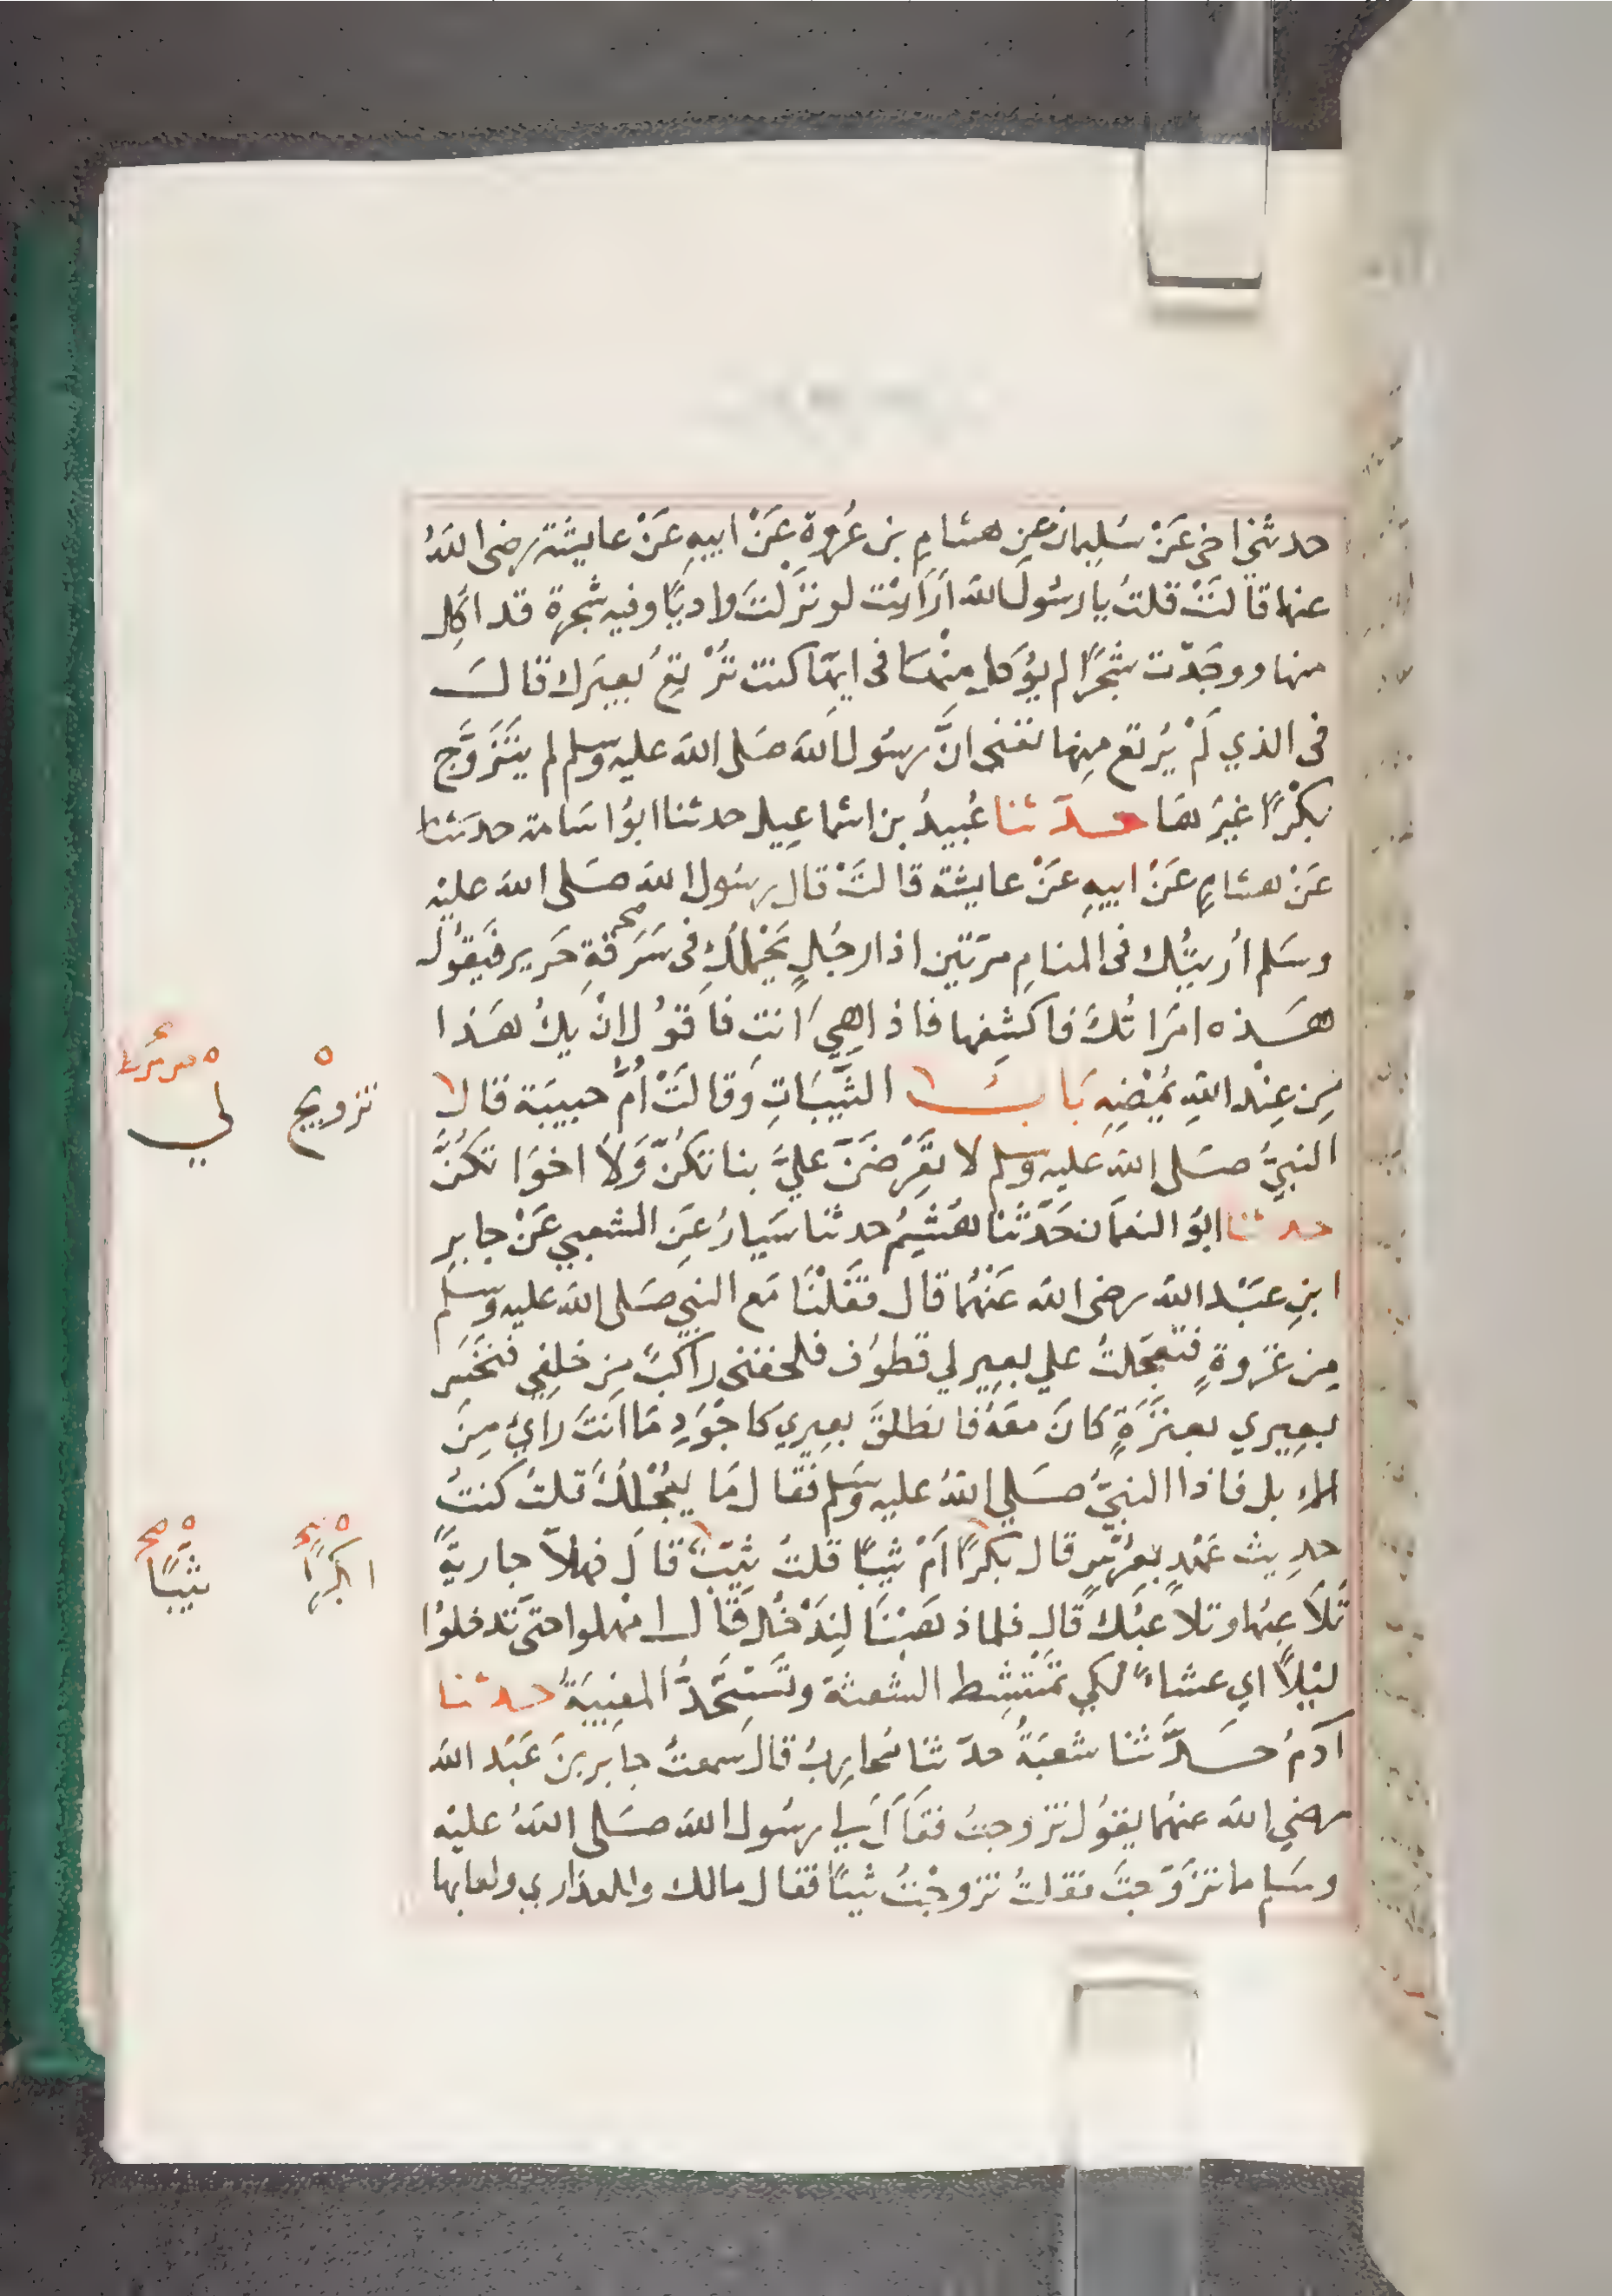 حدثني اخي عَنْ سُلِيمان عن هشامِ بن عُروة عَنْ ابيهِ عَنْ عايشة رضى اللهُ
عنها قالتْ قلتُ يا رسُولَ الله أرَأيت لو نَزَلْتَ واديًا وفيه شجرة قد اكِل
منها ووجَدْت شجرًا لم يؤكل مِنْها فى ايّها كنت تُرْتِعُ بعيرَك قالَ
فى الذي لَمْ يُرتع مِنها تعني انَّ رسُول الله صَلى الله عليه وسلم لم يتَزَوَّج
بكْرًا غيرَهَا حدثنا عُبيدُ بن اسماعِيل حدثنا ابوُ اسَامة حدثنا
عَنْ هشامٍ عَنْ ابيهِ عَنْ عايشة قالتْ قال رسُول الله صَلى الله عليْه
وسَلم أُريتُك فى المنامِ مرّتين اذا رجُل يَحْملُكِ فى سَرَقةِ حَرير فيَقوُل
هَذه امرَاتُكَ فاكشِفها فاذا هِيَ انتِ فاقوُل انْ يكُ هَذا
مِن عِنْد اللهِ يُمْضِهِ بَابُ الثَّيّبَاتِ وَقالَتْ اُمُّ حبيبَة قال لا
النبيُّ صَلى الله عليه وسلم لا تعْرِضنَ عليَّ بناتكُنّ وَلاَ اخوَاتكُنَّ
حدثنا ابوُ النعمَان حَدَّثنا هُشَيْمُ حدثنا سَيارُ عَنِ الشعبي عَنْ جابر
ابنِ عَبْد الله رضى الله عَنْهُما قال قفَلْنَا مَع النبي صَلى الله عليه وسلم
مِن غزوةٍ فتعجّلتُ علي بعيرٍ لي قطوُف فلحقنى راكبٌ مِن خلفِي فنخَسَ
بعِيري بعنَزَةٍ كانَ معَهُ فانطلقَ بعِيري كاجْوَدِ مَا اَنتَ رَاءٍ مِنَ
الاِبل فاذا النبيُّ صَلي اللهُ عليه وسَلم فقال مَا يُعْجلُكَ قلتُ كنتُ
حدِيث عَهْدٍ بعُرْسٍ قال بكرًا اَمْ ثيبًا قلتُ ثيّبٌ قالَ فهلاّ جاريةً
تلاَعِبُها وتلاَعبُك قال فلما ذهَبْنَا لِنَدْخُلَ قال امهلوا حتى تَدخلوُا
ليْلاً اي عشاءً لكي تَمْتشِط الشعثة وتَسْتَحدَّ المغِيبَةُ حدثنا
آدَمُ حَدَّثنا شعبَةُ حدّثنا محُاربُ قال سَمعتُ جابر بنَ عَبْد الله
رضي الله عنهُما يقوُل تزوجتُ فقال لي رسُول الله صَلى اللهُ عليْه
وسَلم ما تزَوّجتَ فقلتُ تزوجْتُ ثيبًا فقال مالك وللعذاري ولعابها
تزويج
لي
ابكرًا
ثيّبًا
صح